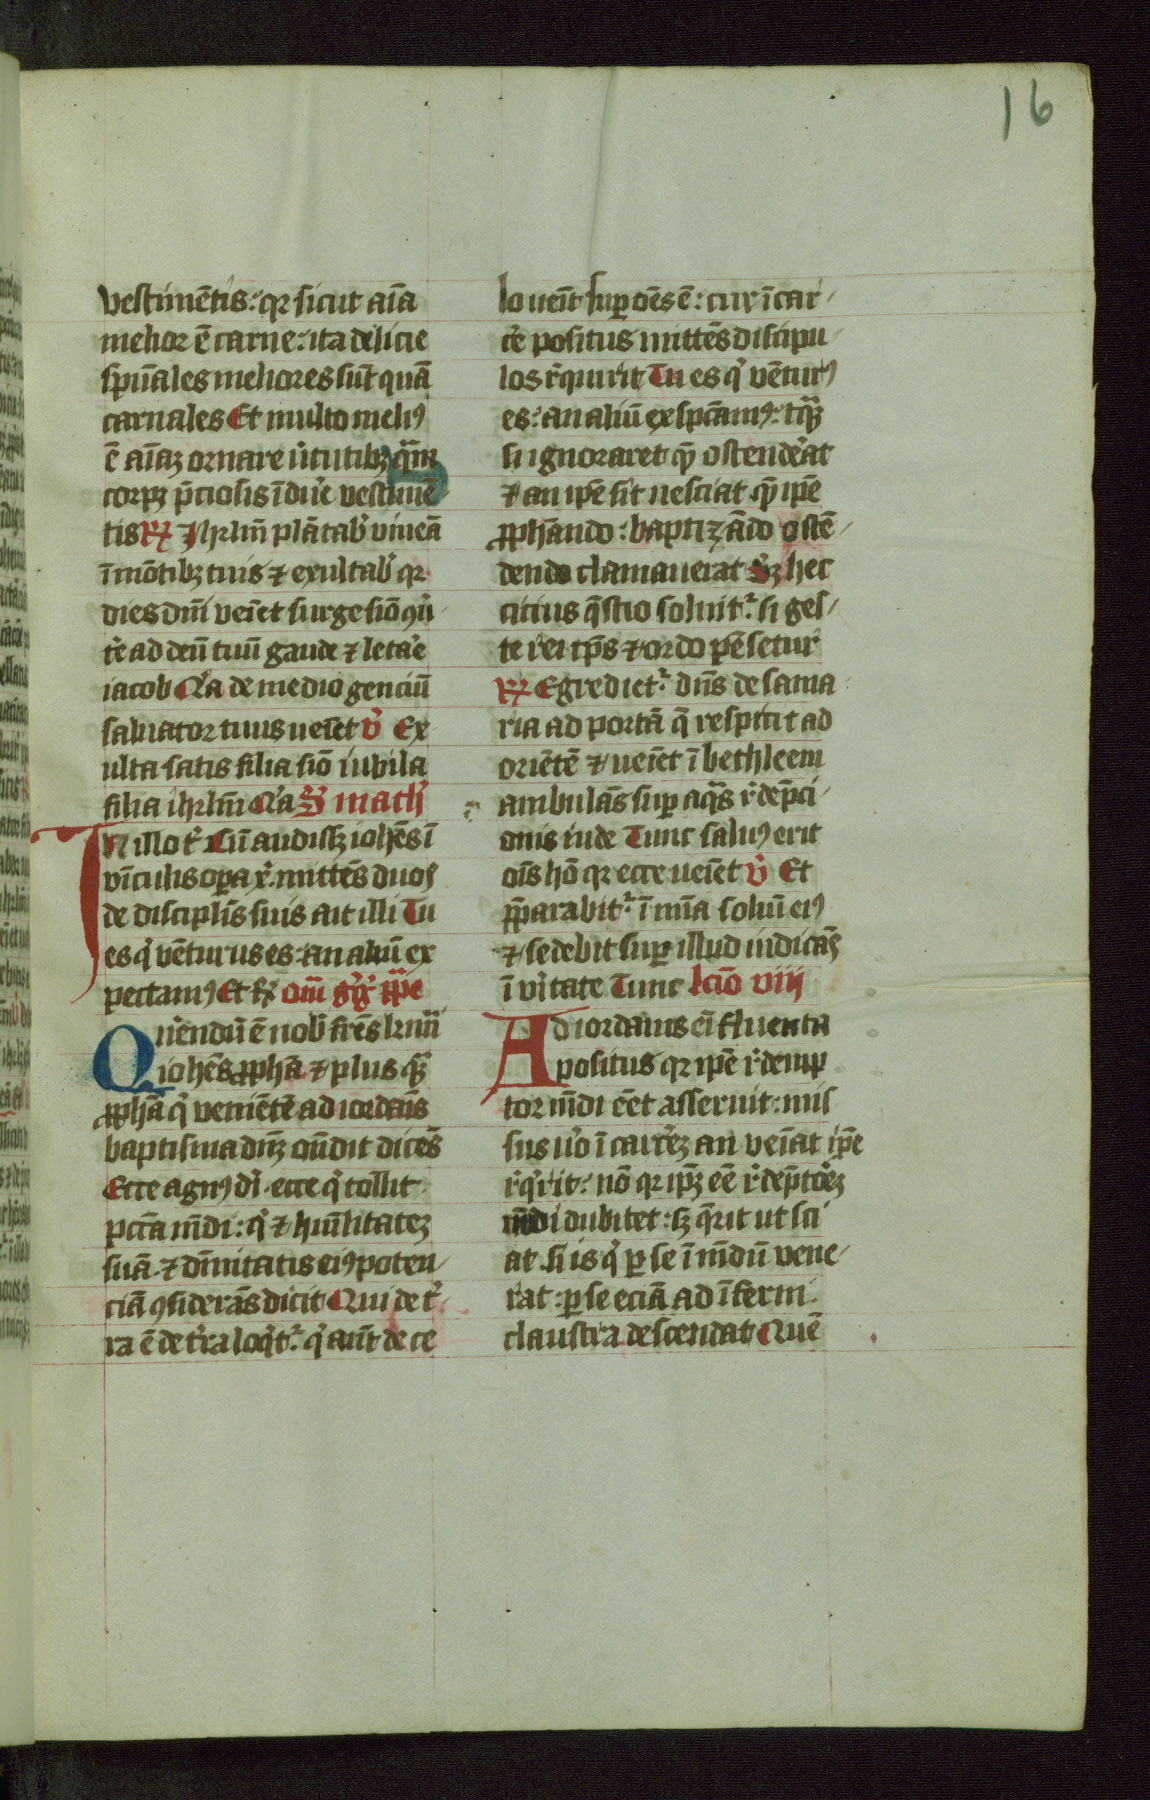 16
vestimētis: qr sicut aīa
melior ē carne: ita delicie
spūales meliores sūt quā
carnales Et multo meliꝰ
ē aīaꝫ ornare v̓tutibꝫ qͣm
corpꝫ p̄ciosis īdu̓e vestimē
tis R̸ Jhrlm̄ plātab̓ vineā
ī mōtibꝫ tuis ⁊ exultab̓ qr
dies dm̄ veīet surge siō ꝯu̓
te̓ ad deū tuū gaude ⁊ letar̓e
iacob Qͥa de medio genciū
saluator tuus ueīet v̓ Ex
ulta satis filia siō iubila
filia ihrlm̄ Qͥa S̄ math̓
In illo t̓ Cū audissꝫ iohēs ī
vīculis oꝑa xͥ. mittēs duos
de discipl̓is suis ait illi Tu
es qͥ vēturus es: an aliū ex
pectamꝰ Et R̸ om̄ gͥgͥ ꝑꝑe
Qu̓endū ē nob̓ fr̄es krmī
iohēs ꝓpha ⁊ plus qͣꝫ
ꝓphā qͥ veniētē ad iordanē
baptisma dm̄ꝫ oñdit dicēs
Ecce agnꝰ dī. ecce qͥ tollit
pccā mūdi: qͥ ⁊ hūilitateꝫ
suā. ⁊ diuitatis eiꝰ poten
ciā ꝯsiderās dicit Qui de t̓
ra ē de t̓ra loqͥtͬ. qͥ aūt de ce
lo ueīt sup̱ oēs ē: cur ī car
ce̓ positus mittēs discipu
los r̓quirit Tu es qͥ vēturꝰ
es: an aliū exspctamꝰ: tqͣꝫ
si ignoraret qͫ ostende̓at
⁊ an ip̄e sit nesciat qͫ ip̄e
ꝓphando: baptiꝫādo ostē
dendo clamauerat Sꝫ hec
citius q̄stio soluitͬ. si ges
te rei tp̄s ⁊ ordo pēsetur
R̸ Egredietͬ. dn̄s de sama
ria ad portā q̄ respicit ad
oriētē ⁊ ueīet ī bethleem
ambulās sup̱ aqͣs r̓dēpci
onis iude Tunc saluꝰ erit
oīs hō qr ecce ueīet v̓ Et
p̄parabitͬ. ī mīa soliū eiꝰ
⁊ sedebit sup̱ illud iudicās
ī v̓itate Tunc lcīo viij
Ad iordanis eī fluenta
positus qr ip̄e r̓demp
tor mūdi eēt asseruit: mis
sus u̓o ī carce̓ꝫ an veīat ip̄e
r̓qͥrit: nō qr ip̄ꝫ eē r̓dēptōeꝫ
mūdi dubitet: sꝫ q̄rit ut sci
at si is qͥ ꝑ se ī mūdū vene
rat: ꝑ se eciā ad īferni
claustra descendat Quē